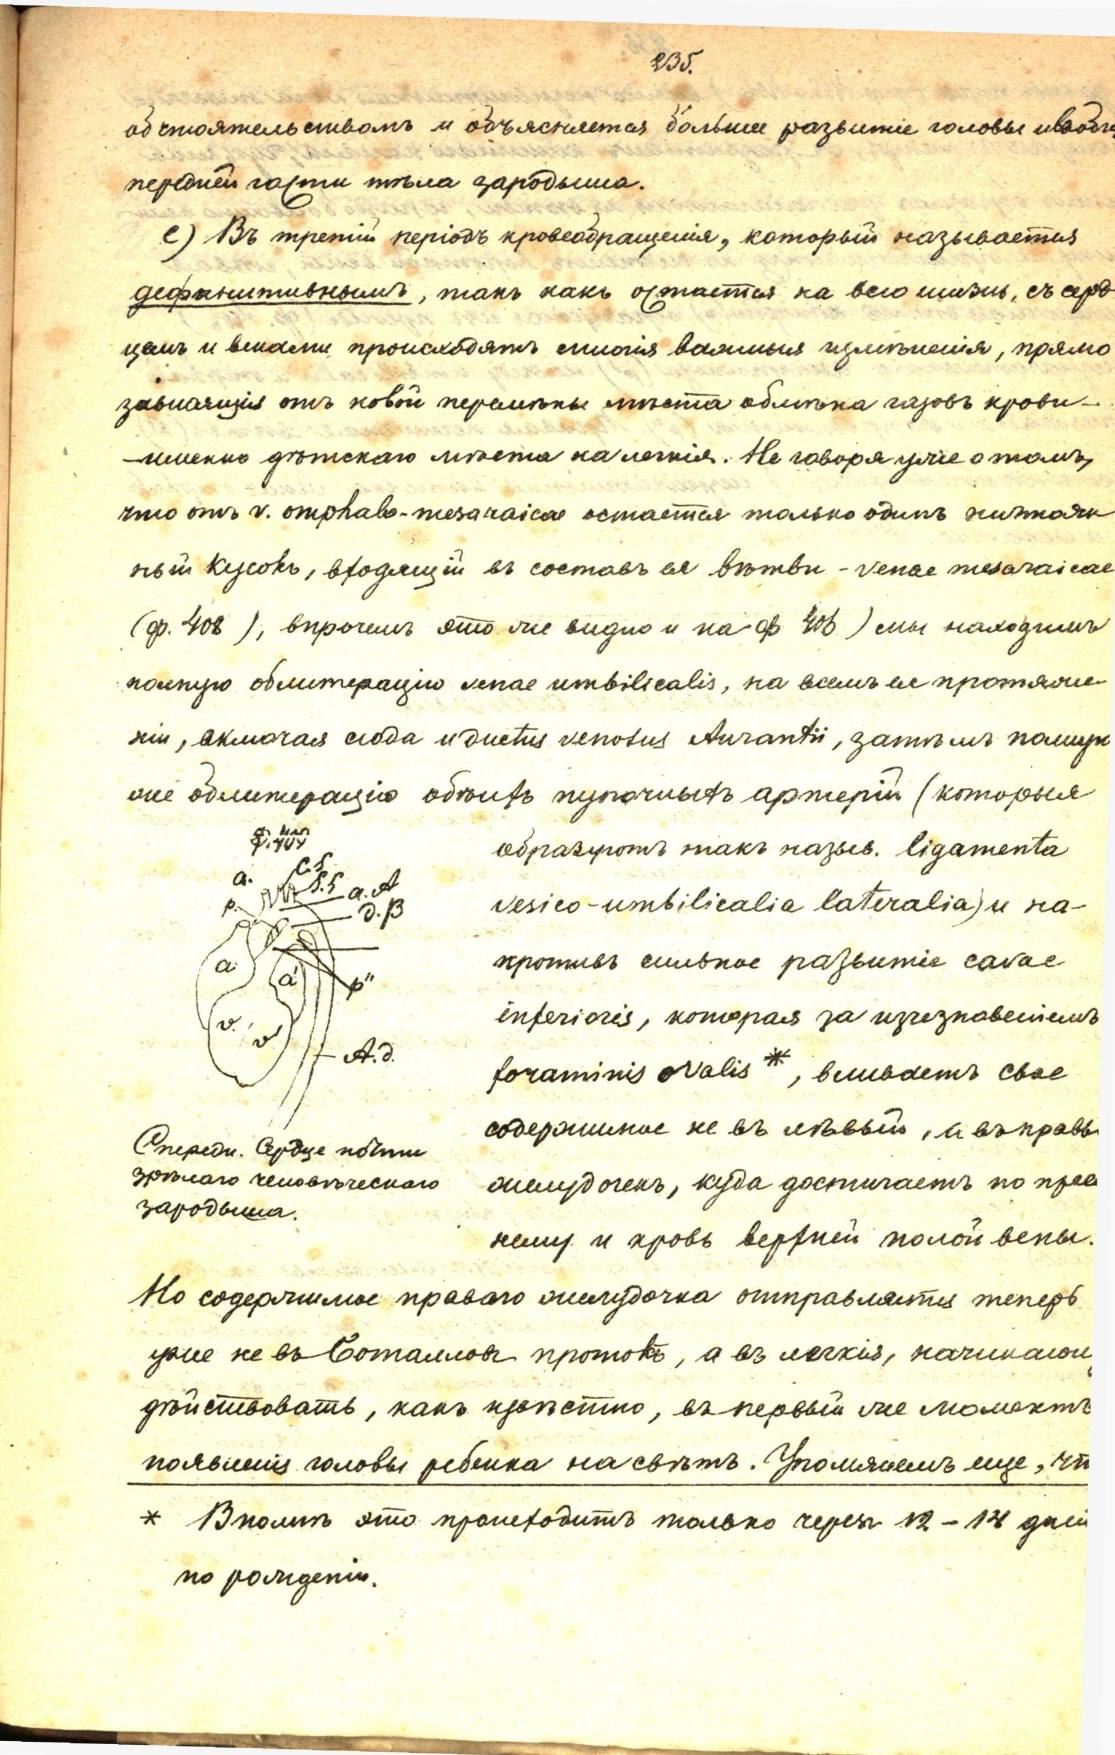 235.
обстоятельствомъ и объясняется большее развитіе головы и вообще
передней части тѣла зародыша.
с) Въ третій періодъ кровеобращенія, который называется
дефинитивнымъ, такъ какъ остается на всю жизнь, съ серд-
цемъ и венами происходятъ многія важныя измѣненія, прямо
зависящія отъ новой перемѣны мѣста обмѣна газовъ крови –
– именно дѣтскаго мѣста на легкія. Не говоря уже о томъ,
что отъ v. omphalo-mesaraicae остается только одинъ
ный кусокъ, входящій въ составъ ея вѣтви - venae mesaraicae
(ф. 408), впрочемъ это же видно и на ф 406) мы находимъ
полную облитерацію venae umbilicalis, на всемъ ее протяже-
ніи, включая сюда и ductus venosus Aurantii, затѣмъ полную
же облитерацію обѣихъ пупочныхъ артерій (которыя
образуютъ такъ назыв. ligamenta
vesico-umbilicalia lateralia) и на-
противъ сильное развитіе cavae
inferioris, которая за изчезновеніемъ
foraminis ovalis *, вливаетъ свое
содержимое не въ лѣвый, а въ правы
желудочекъ, куда достигаетъ по преж
нему и кровь верхней полой вены.
ф. 404
a.
C.S.
S.S
p.
a. A
d. B
a
a'
p"
v.
v'
A.d.
Спереди. Сердце почти
зрѣлаго человѣческаго
зародыша.
Но содержимое праваго желудочка отправляется теперь
уже не въ Боталловъ протокъ, а въ легкія, начинающ
дѣйствовать, какъ извѣстно, въ первый же моментъ
появленія головы ребенка на свѣтъ. Упомянемъ еще, что
* Вполнѣ это происходитъ только черезъ 12 – 14 дней
по рожденіи.